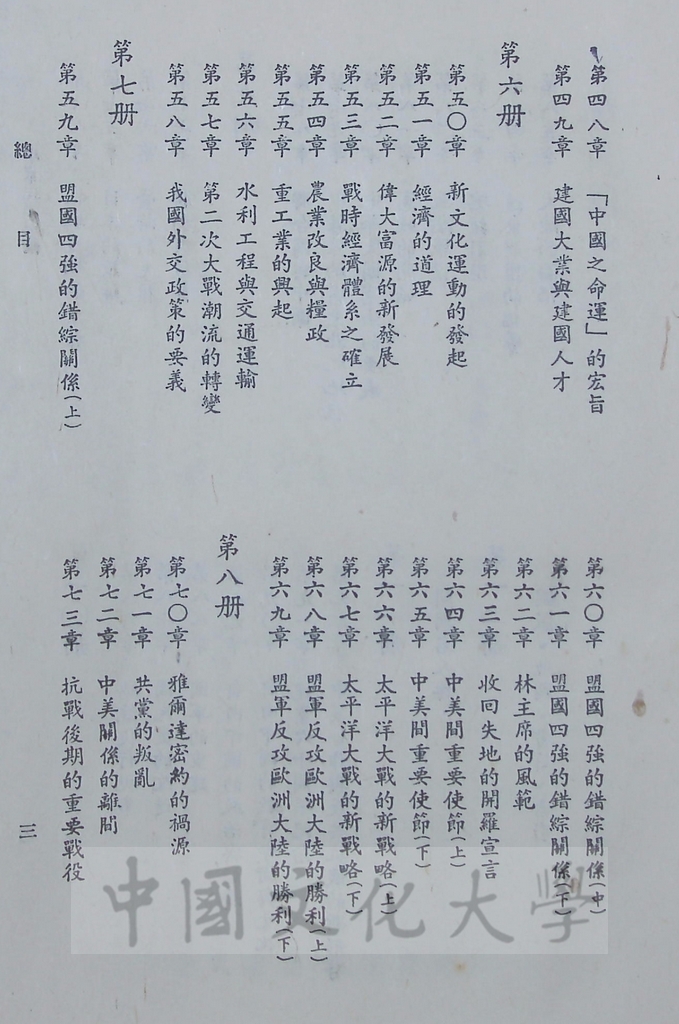 第四八章 「中國之命運」的宏旨
第四九章 建國大業與建國人才
第六册
第五〇章 新文化運動的發起
第五一章 經濟的道理
第五二章 偉大富源的新發展
第五三章 戰時經濟體系之確立
第五四章 農業改良與糧政
第五五章 重工業的興起
第五六章 水利工程與交通運輸
第五七章 第二次大戰潮流的轉變
第五八章 我國外交政策的要義
第七册
第五九章 盟國四強的錯綜關係(上)
第六〇章 盟國四強的錯綜關係(中)
第六一章 盟國四強的錯綜關係(下)
第六二章 林主席的風範
第六三章 收回失地的開羅宣言
第六四章 中美間重要使節(上)
第六五章 中美間重要使節(下)
第六六章 太平洋大戰的新戰略(上)
第六七章 太平洋大戰的新戰略(下)
第六八章 盟軍反攻歐洲大陸的勝利(上)
第六九章 盟軍反攻歐洲大陸的勝利(下)
第八册
第七〇章 雅爾達密約的禍源
第七一章 共黨的叛亂
第七二章 中美關係的離間
第七三章 抗戰後期的重要戰役
總目
三
中國文化大學